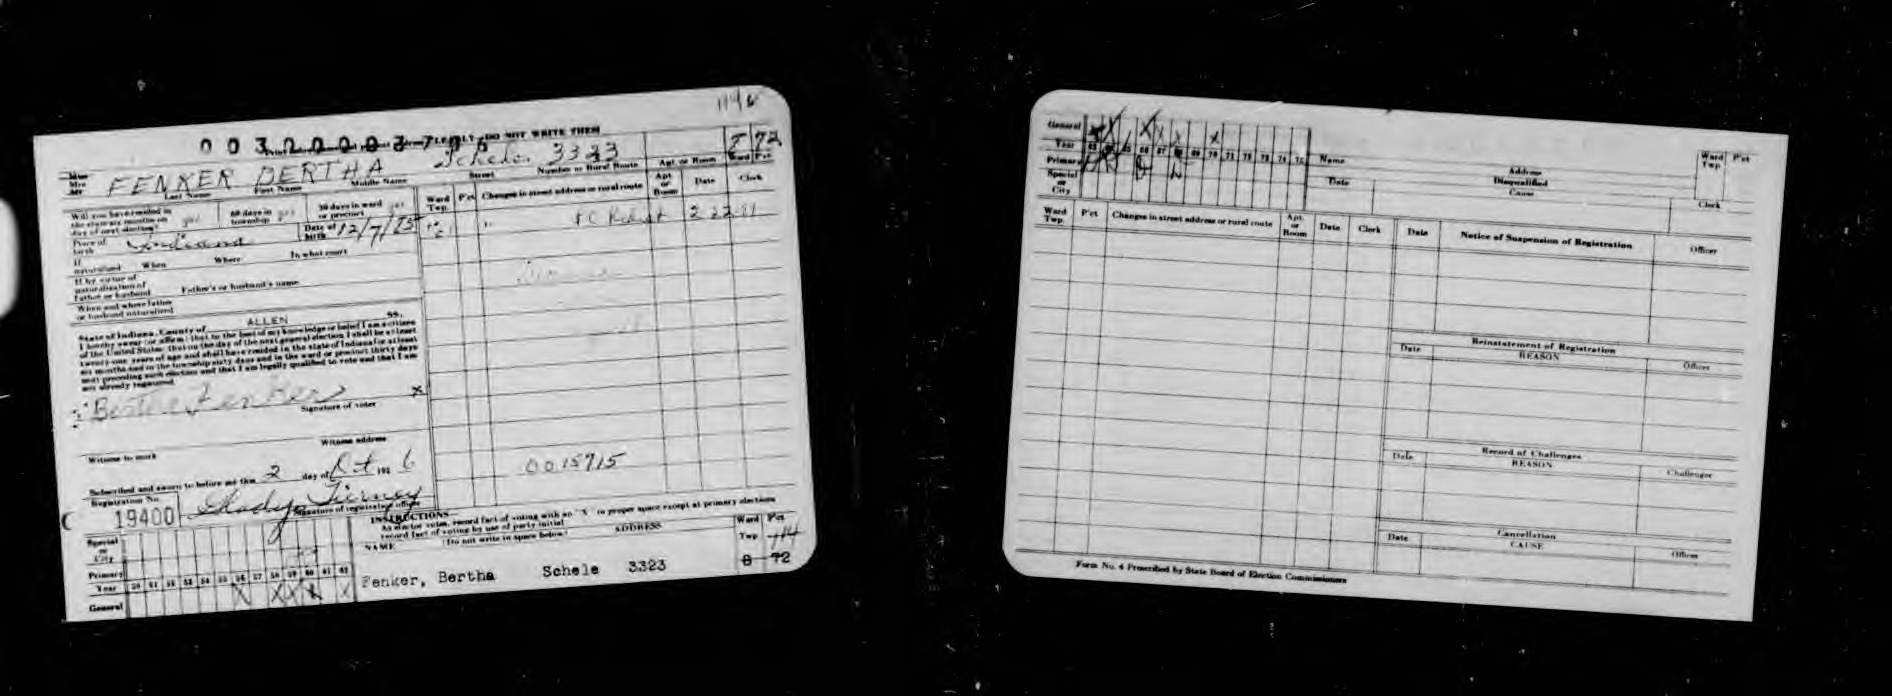 1146
PLAINLY - DO NOT WRITE THEM
00320003706
Miss
Mrs
Mr
FENKER BERTHA Schele 3323 8 72
Last Name First Name Middle Name Street Number or Rural Route Apt. or Room Ward Pct
Will you have resided in the state six months on day of next election? yes 60 days in township yes 30 days in ward or precinct yes
Place of birth Indiana Date of birth 12/7/
If naturalized When Where In what court
If by virtue of naturalization of Father or husband Father's or husband's name
When and where father or husband naturalized
Ward Twp. P'ct Changes in street address or rural route Apt. or Room Date Clerk
2-22-
State of Indiana, County of ALLEN SS:
I hereby swear (or affirm) that to the best of my knowledge or belief I am a citizen
of the United States; that on the day of the next general election I shall be at least
twenty-one years of age and shall have resided in the state of Indiana for at least
six months and in the township sixty days and in the ward or precinct thirty days
next preceding such election and that I am legally qualified to vote and that I am
not already registered.
Bertha Fenker X
Signature of voter
Witness address
Witness to mark
0015715
Subscribed and sworn to before me this 2 day of Oct 6
Registration No.
19400
Gladys Tierney
Signature of registration officer
INSTRUCTIONS
As elector votes, record fact of voting with an "X" in proper space except at primary elections
record fact of voting by use of party initial
(Do not write in space below)
NAME ADDRESS Ward Twp P'ct
114
Fenker, Bertha Schele 3323 8 72
Special or City
Primary
Year 50 51 52 53 54 55 56 57 58 59 60 61 62
General X X X X X
General X X X X X X
Year 63 65 66 67 68 69 70 71 72 73 74 75
Primary
Special or City
Name Address Ward Twp P'ct
Date Disqualified
Cause Clerk
Ward Twp. P'ct Changes in street address or rural route Apt. or Room Date Clerk
Date Notice of Suspension of Registration Officer
Reinstatement of Registration
Date REASON Officer
Record of Challenges
Date REASON Challenger
Cancellation
Date CAUSE Officer
Form No. 4 Prescribed by State Board of Election Commissioners